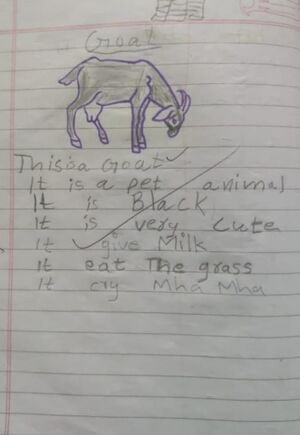 Goat
This is a Goat
It is a pet animal
It is Black
It is very cute
It give Milk
It eat The grass
It cry Mha Mha